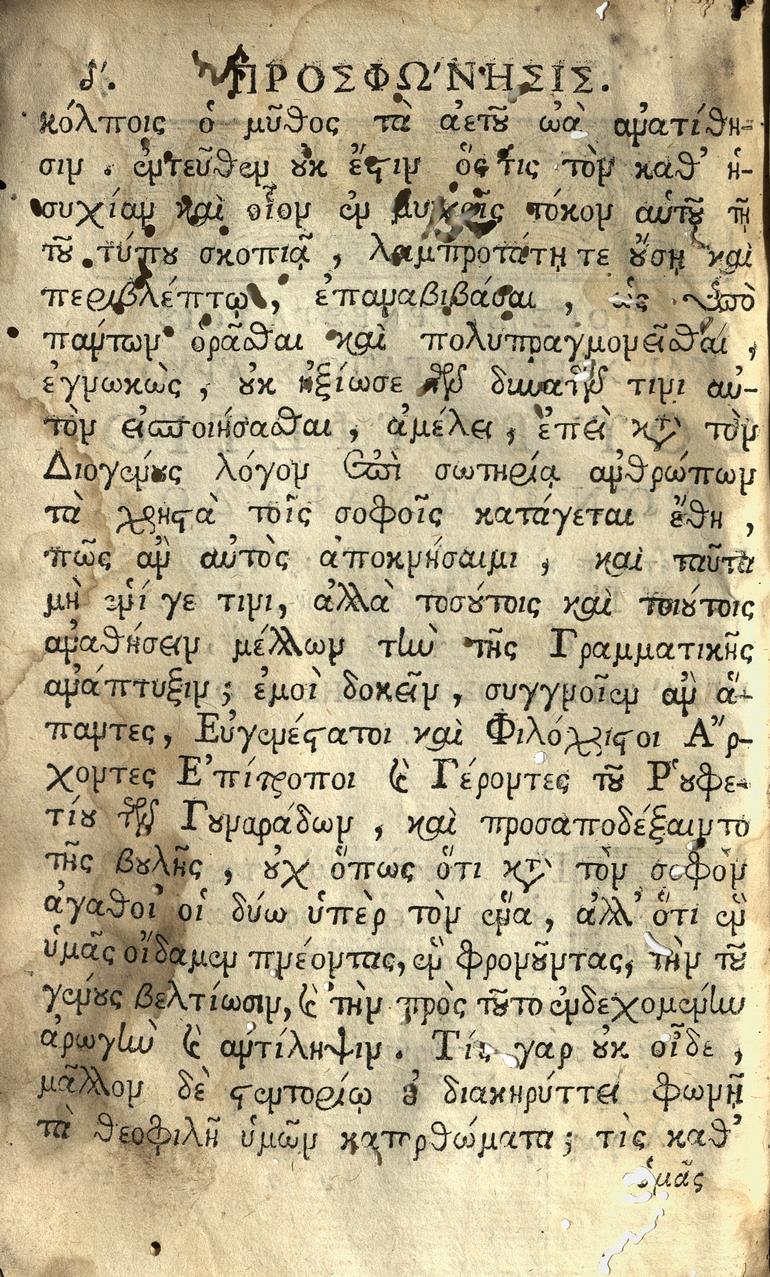 δ'. ΠΡΟΣΦΩ'ΝΗΣΙΣ.
κόλποις ὁ μῦθος τὰ ἀετοῦ ὠὰ ἀνατίθη-
σιν. ἐντεῦθεν οὐκ ἔστιν ὅστις τὸν καθ' ἡ-
συχίαν καὶ οἷον ἐν μυχοῖς τόκον αὐτοῦ τῇ
τοῦ τύπου σκοπιᾷ, λαμπροτάτῃ τε οὔσῃ καὶ
περιβλέπτῳ, ἐπαναβιβάσαι, ὡς ὑπὸ
πάντων ὁρᾶσθαι καὶ πολυπραγμονεῖσθαι,
ἐγνωκὼς, οὐκ ἠξίωσε τῶν δυνατῶν τινι αὐ-
τὸν εἰσποιήσασθαι, ἀμέλει, ἐπεὶ κατὰ τὸν
Διογένους λόγον ἐπὶ σωτηρίᾳ ἀνθρώπων
τὰ χρηστὰ τοῖς σοφοῖς κατάγεται ἔθη,
πῶς ἂν αὐτὸς ἀποκνήσαιμι, καὶ ταῦτα
μὴ ἑνί γε τινι, ἀλλὰ τοσούτοις καὶ τοιούτοις
ἀναθήσειν μέλλων τὴν τῆς Γραμματικῆς
ἀνάπτυξιν; ἐμοὶ δοκεῖν, συγγνοῖεν ἂν ἅ-
παντες, Εὐγενέστατοι καὶ Φιλόχριστοι Ἄρ-
χοντες Ἐπίτροποι καὶ Γέροντες τοῦ Ῥουφε-
τίου τῶν Γουναράδων, καὶ προσαποδέξαιντο
τῆς βουλῆς, οὐχ ὅπως ὅτι κατὰ τὸν σοφὸν
ἀγαθοὶ οἱ δύω ὑπὲρ τὸν ἕνα, ἀλλ' ὅτι ἓν
ὑμᾶς οἴδαμεν πνέοντας, ἓν φρονοῦντας, τὴν τοῦ
γένους βελτίωσιν, καὶ τὴν πρὸς τοῦτο ἐνδεχομένην
ἀρωγὴν καὶ ἀντίληψιν. Τίς γαρ οὐκ οἶδε,
μᾶλλον δὲ στεντορίῳ οὐ διακηρύττει φωνῇ
τὰ θεοφιλῆ ὑμῶν κατορθώματα; τίς καθ'
ὑμᾶς